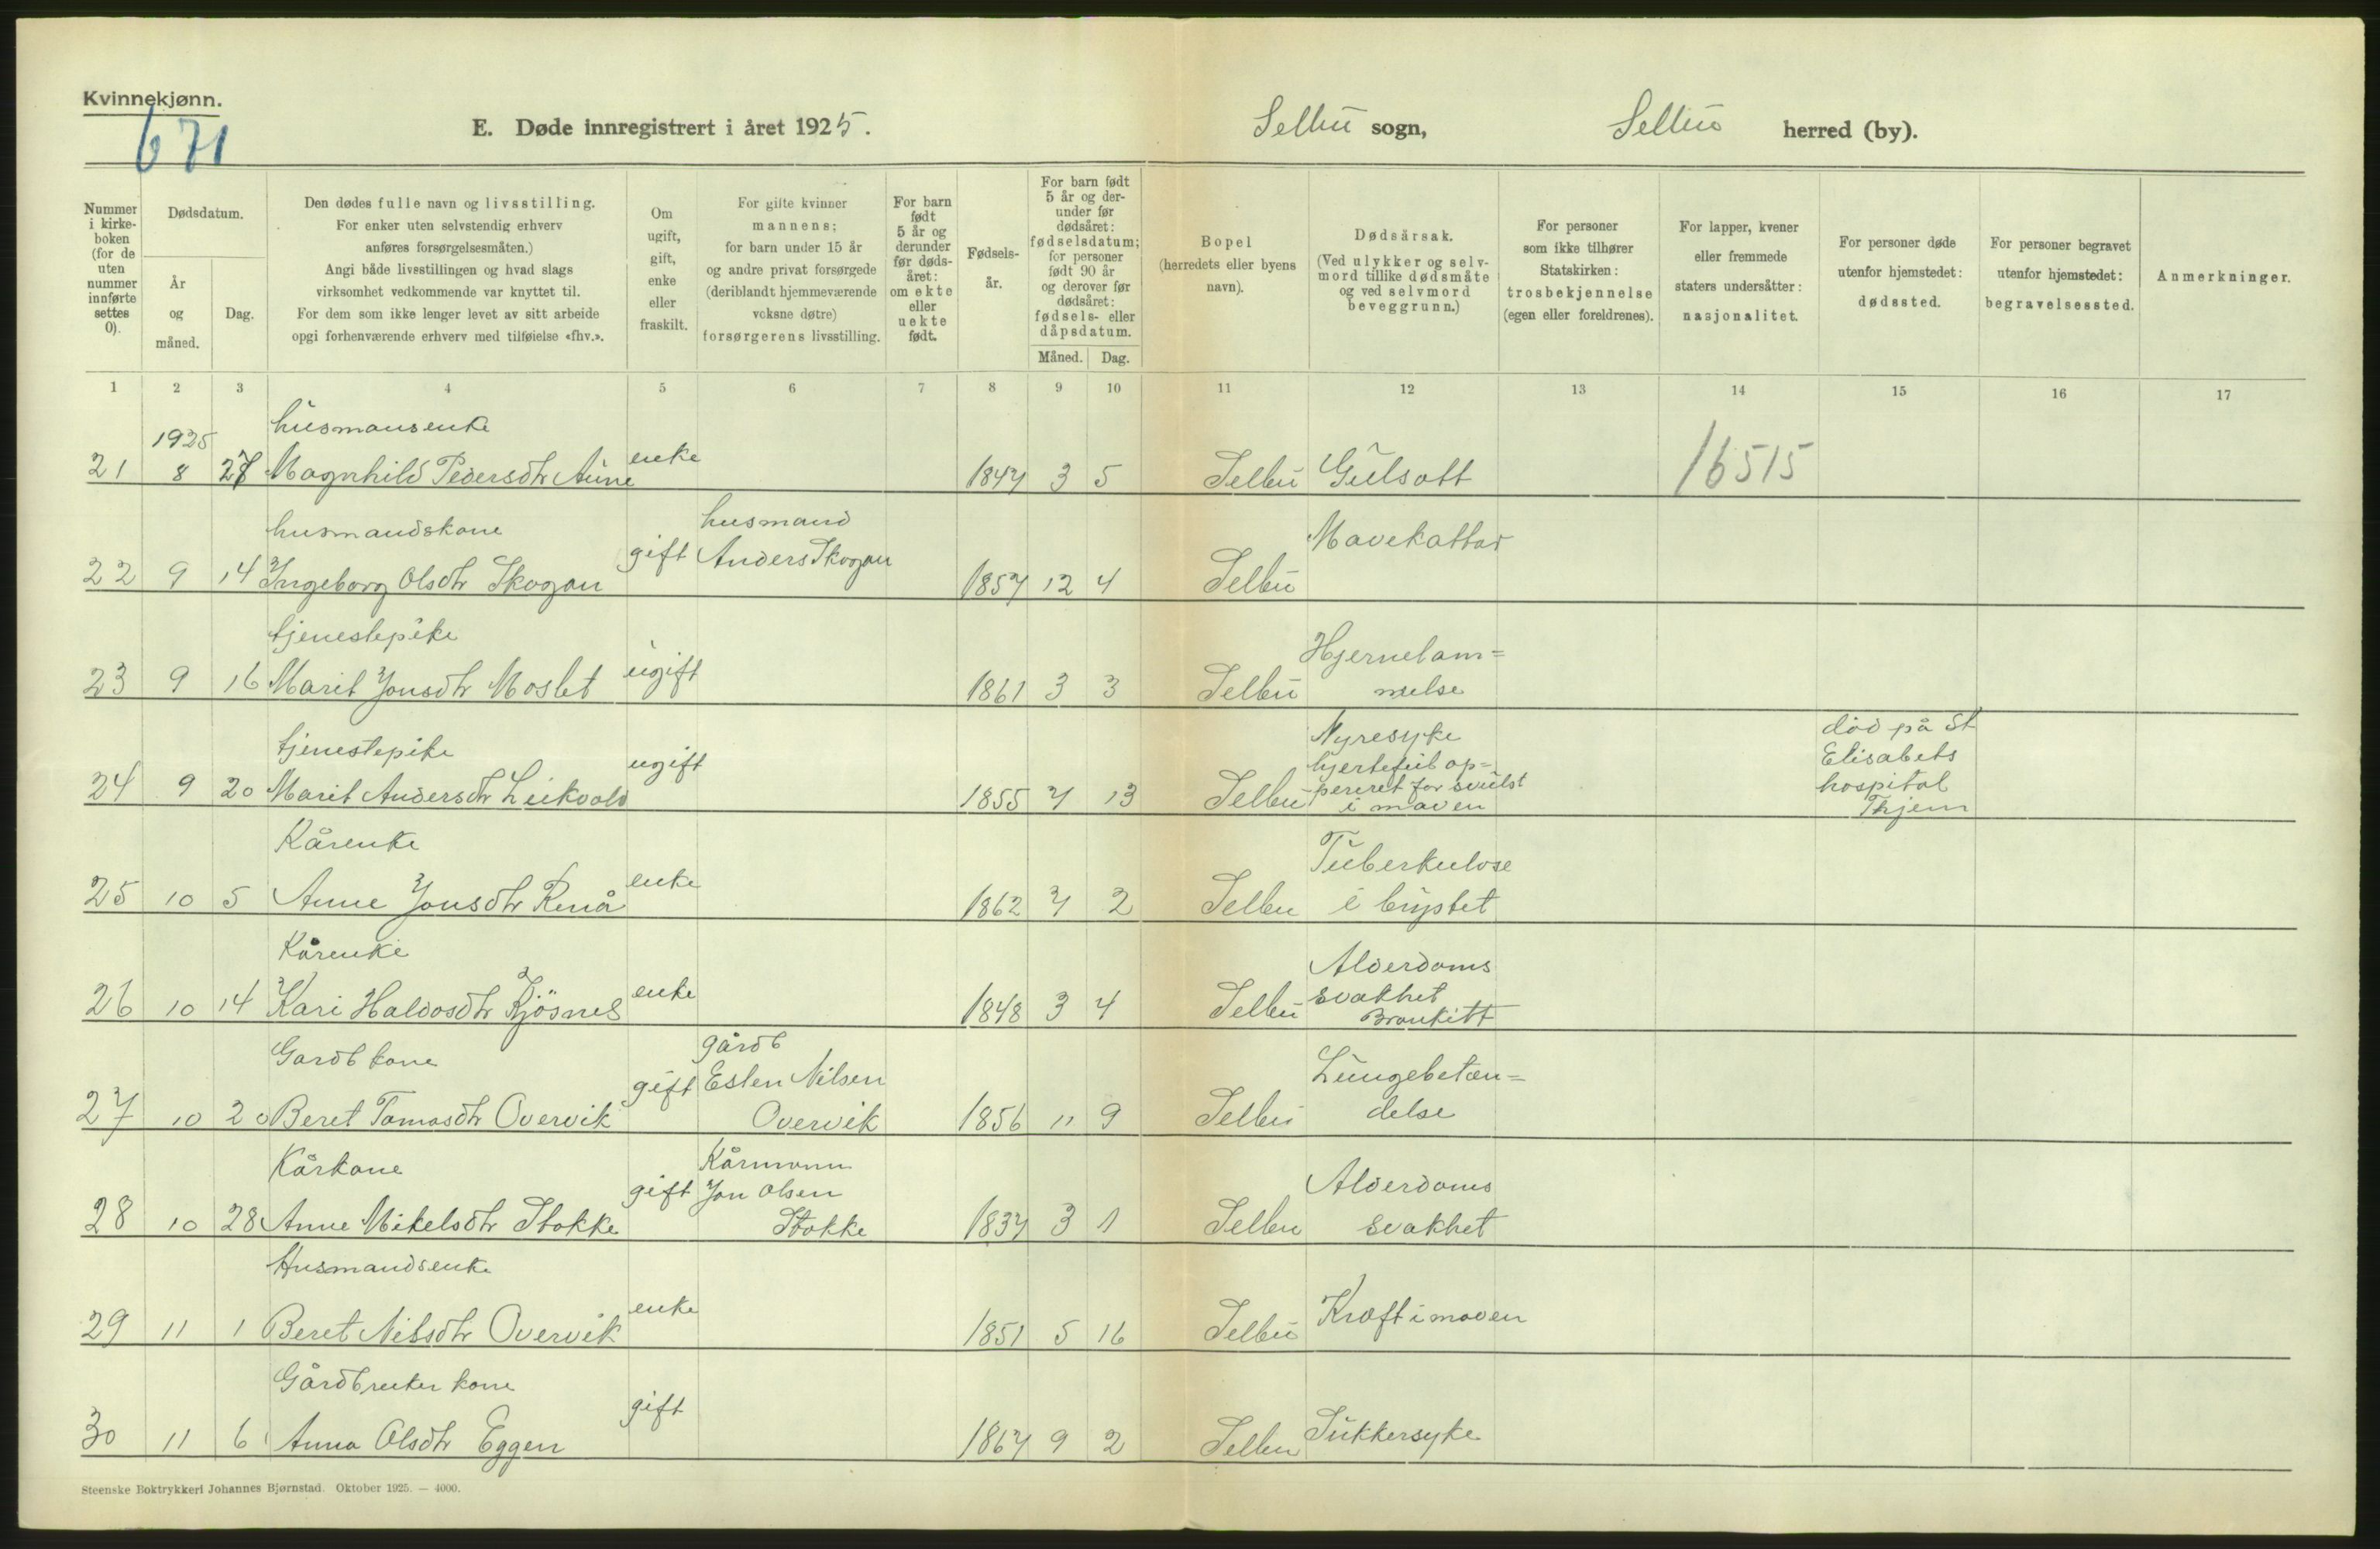 Kvinnekjønn.
671
E. Døde innregistrert i året 1925.
Selbu sogn, Selbu herred (by).
Nummer i kirkeboken (for de uten nummer innførte settes 0).
Dødsdatum.
År og måned.
Dag.
Den dødes fulle navn og livsstilling.
For enker uten selvstendig erhverv
anføres forsørgelsesmåten.)
Angi både livsstillingen og hvad slags
virksomhet vedkommende var knyttet til.
For dem som ikke lenger levet av sitt arbeide
opgi forhenværende erhverv med tilføielse «fhv.».
Om ugift, gift, enke eller fraskilt.
For gifte kvinner
mannens;
for barn under 15 år
og andre privat forsørgede
(deriblandt hjemmeværende
voksne døtre)
forsørgerens livsstilling.
For barn født 5 år og derunder før dødsåret: om ekte eller uekte født.
Fødselsår.
For barn født 5 år og derunder før dødsåret: fødselsdatum; for personer født 90 år og derover før dødsåret: fødsels- eller dåpsdatum.
Måned. Dag.
Bopel
(herredets eller byens
navn).
Dødsårsak.
(Ved ulykker og selv-
mord tillike dødsmåte
og ved selvmord
beveggrunn.)
For personer
som ikke tilhører
Statskirken:
trosbekjennelse
(egen eller foreldrenes).
For lapper, kvener
eller fremmede
staters undersåtter:
nasjonalitet.
For personer døde
utenfor hjemstedet:
dødssted.
For personer begravet
utenfor hjemstedet:
begravelsessted.
Anmerkninger.
1 2 3 4 5 6 7 8 9 10 11 12 13 14 15 16 17
husmansenke
1925
21 8 27 Magnhild Pedersdtr Aune enke 1847 3 5 Selbu Gulsott 16515
husmandskone
husmand
22 9 14 Ingeborg Olsdtr Skogan gift Anders Skogan 1857 12 4 Selbu Mavekattar
tjenestepike
23 9 16 Marit Jonsdtr Moslet ugift 1861 3 3 Selbu Hjernelam=
melse
tjenestepike
24 9 20 Marit Andersdtr Lukvold ugift 1855 7 13 Selbu Nyresyke
hjertefeil op=
pereret for svulst
i maven
død på St
Elisabets
hospital
Thjem
Kårenke
25 10 5 Anne Jonsdtr Renå enke 1862 7 2 Selbu Tuberkulose
i brystet
Kårenke
26 10 14 Kari Haldosdtr Kjösnes enke 1848 3 4 Selbu Alderdoms
svakhet
Bronkitt
Gardb kone
gårdb
27 10 20 Beret Tomasdtr Overvik gift Esten Nilsen
Overvik 1856 11 9 Selbu Lungebetæn=
delse
Kårkone
Kårmann
28 10 28 Anne Mikelsdtr Stokke gift Jon Olsen
Stokke 1837 3 1 Selbu Alderdoms
svakhet
Husmandsenke
29 11 1 Beret Nilsdtr Overvik enke 1851 5 16 Selbu Kræft i maven
Gårdbruker kone
30 11 6 Anna Olsdtr Eggen gift 1867 9 2 Selbu Sukkersyke
Steenske Boktrykkeri Johannes Bjørnstad. Oktober 1925. — 4000.